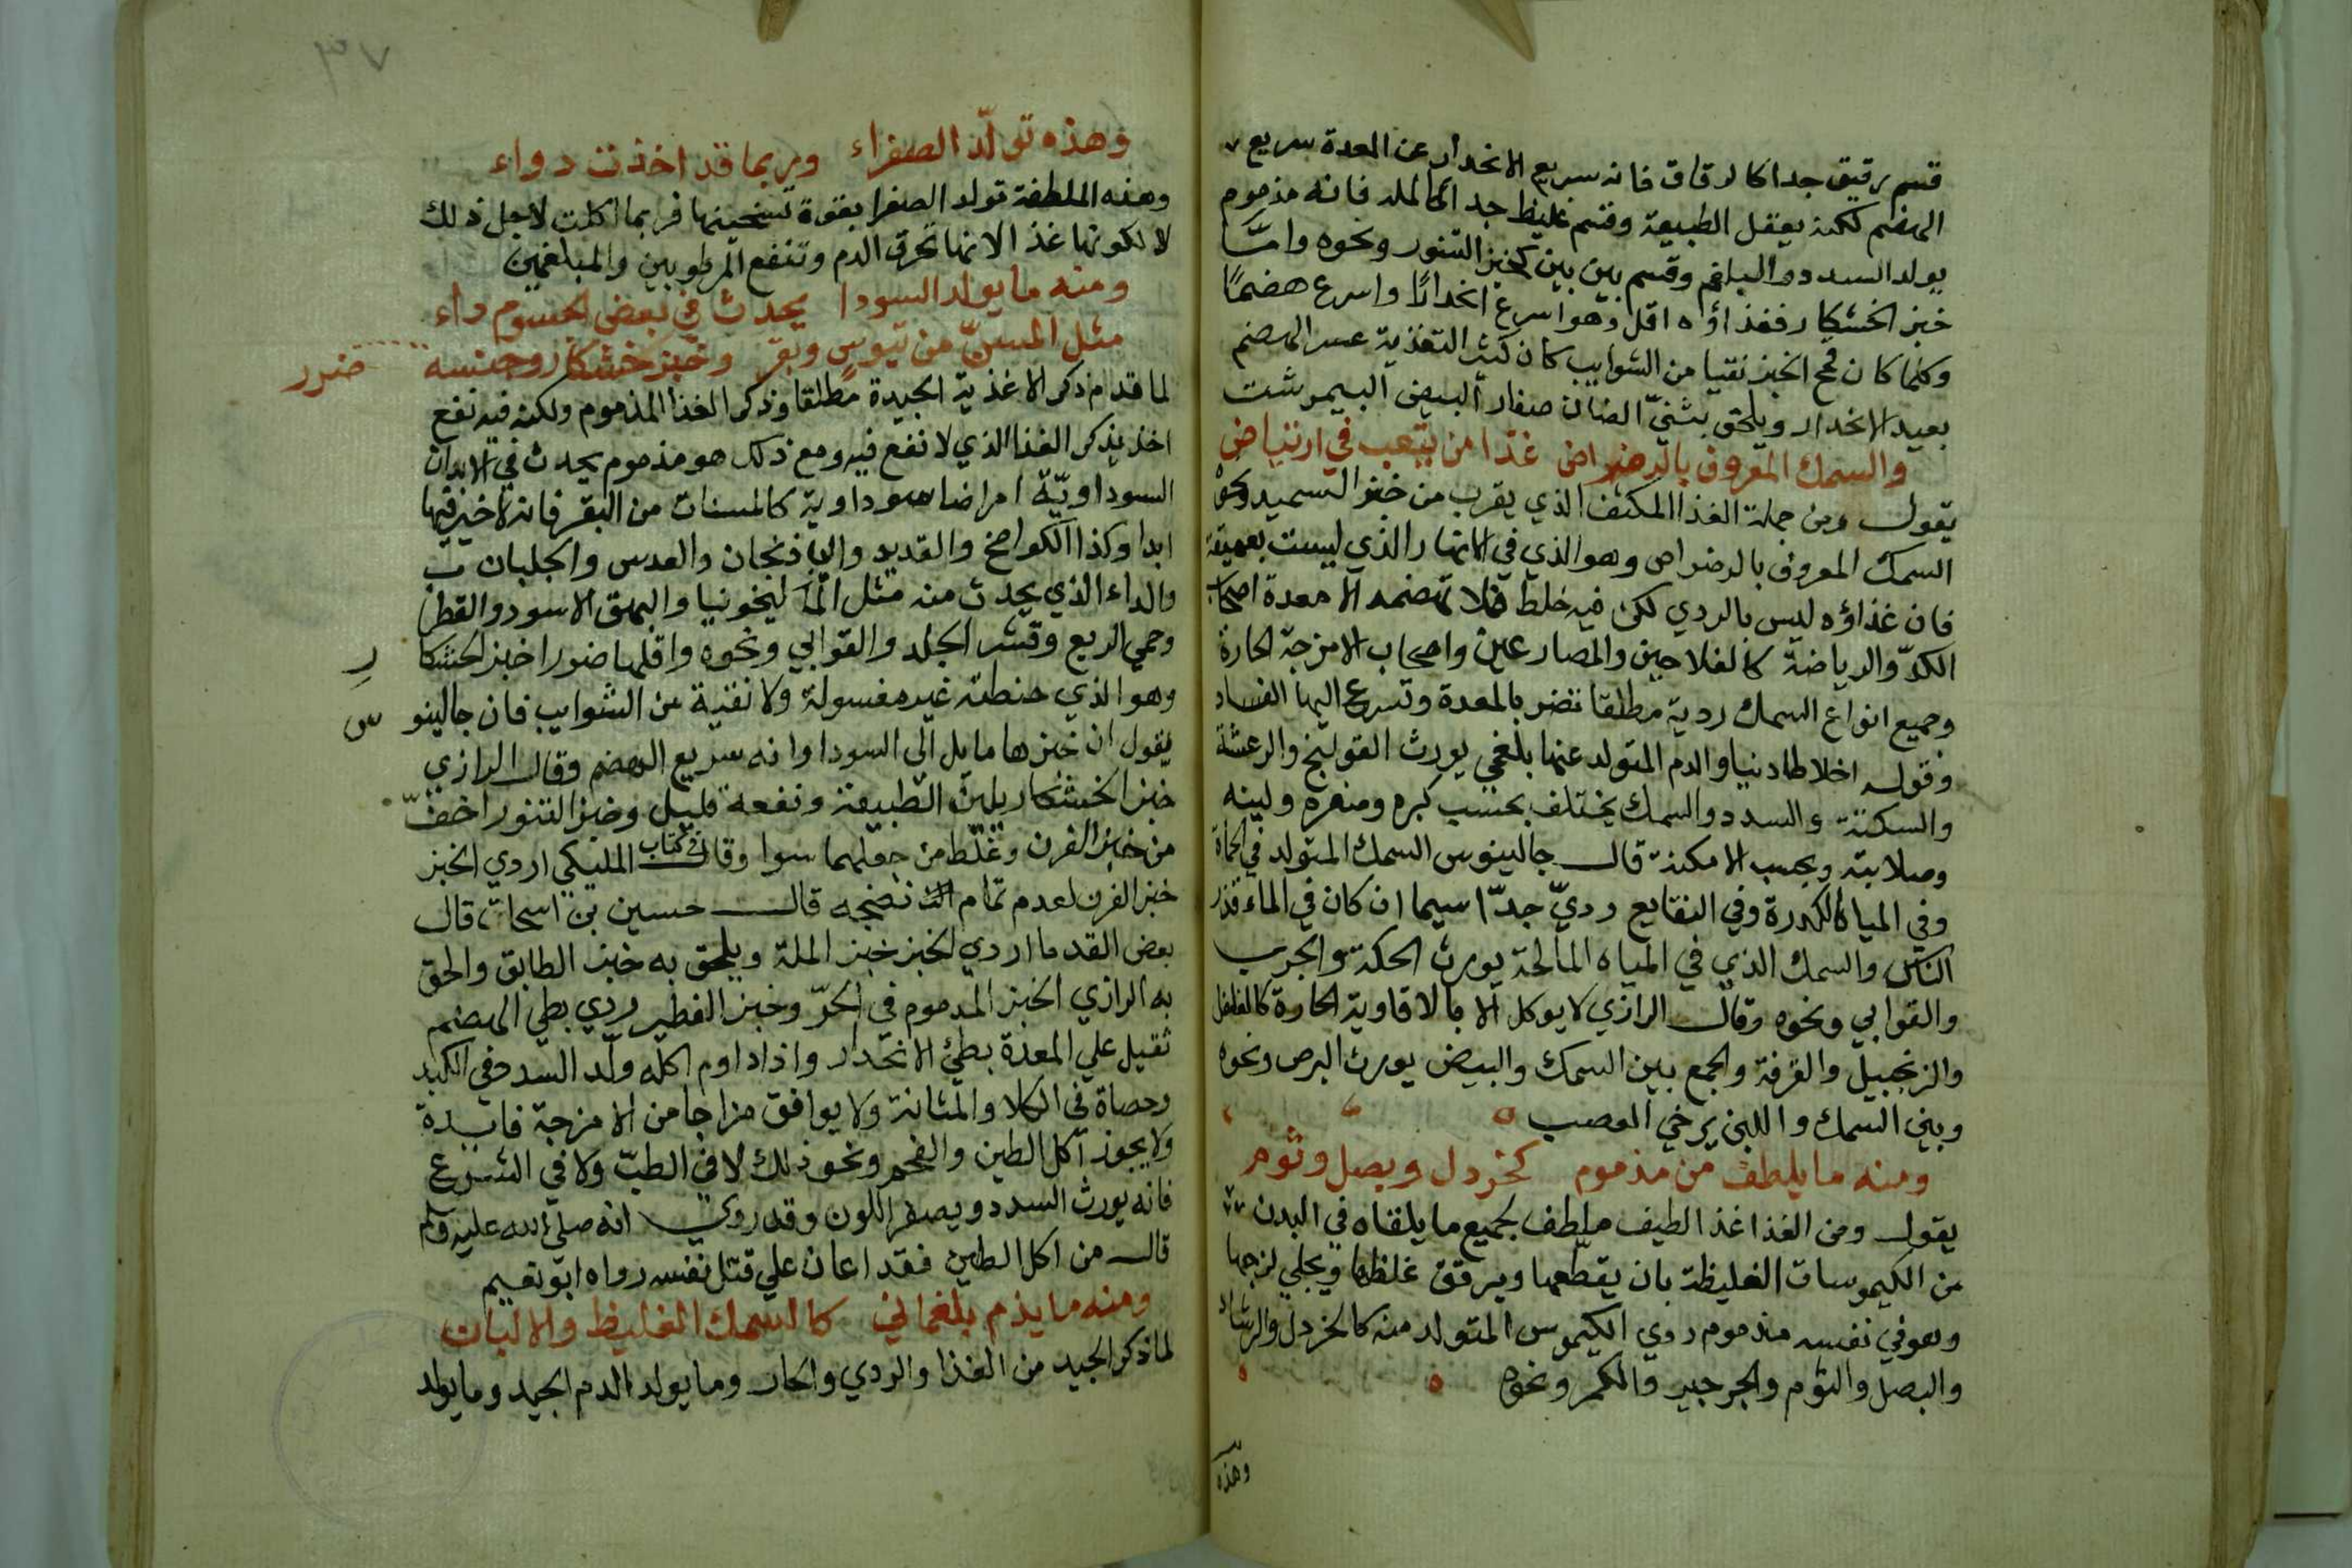 قسم رقيق جدا كالرقاق فانه سريع الانحدار عن المعدة سريع
الهضم لكنه يعقل الطبيعة وقسم غليظ جدا كالملة فانه مذموم
يولد السدد والبلغم وقسم بين بين كخبز التنور ونحوه واما
خبز الخشكار فغذاؤه اقل وهو اسرع انحدارًا واسرع هضمًا
وكلما كان قمح الخبز نقيا من الشوايب كان كثير التغذية عسر الهضم
بعيد الانحدار ويلحق بثنيّ الضان صفار البيض البيمرشت
والسمك المعروف بالرضراض غذا من يتعب في ارتياض
يقول ومن جملة الغذا المكثف الذي يقرب من خبز السميد ونحوه
السمك المعروف بالرضراض وهو الذي في الانهار الذي ليست بعميقة
فان غذاؤه ليس بالردي لكن فيه غلظ فلا تهضمه الا معدة اصحاب
الكدّ والرياضة كالفلاحين والمصارعين واصحاب الامزجة الحارة
وجميع انواع السمك ردية مطلقا تضر بالمعدة وتسرع اليها الفساد
وقوله اخلاطا دنيا والدم المتولد عنها بلغمي يورث القولنج والرعشة
والسكتة والسدد والسمك يختلف بحسب كبره وصغره ولينه
وصلابته وبحسب الامكنة قال جالينوس السمك المتولد في الحماة
وفي المياه الكدرة وفي النقايع رديّ جدّا سيما ان كان في الماء قذر
الناس والسمك الذي في المياه المالحة يورث الحكة والجرب
والقوابي ونحوه وقال الرازي لا يوكل الا بالافاوية الحارة كالفلفل
والزنجبيل والقرفة والجمع بين السمك والبيض يورث البرص ونحوه
وبين السمك واللبن يرخي العصب
ومنه ما يلطف من مذموم كخردل وبصل وثوم
يقول ومن الغذا غذا لطيف ملطف لجميع ما يلقاه في البدن
من الكيموسات الغليظة بان يقطعها ويرقق غلظها ويجلي لزجها
وهو في نفسه مذموم ردي الكيموس المتولد منه كالخردل والرشاد
والبصل والثوم والجرجير والكمر ونحوه
وهذه
٣٧
وهذه تولّد الصفراء وربما قد اخذت دواء
وهذه الملطفة تولد الصفرا بقوة تسخينها فربما اكلت لاجل ذلك
لا لكونها غذا لانها تحرق الدم وتنفع المرطوبين والمبلغمين
ومنه ما يولد السودا يحدث في بعض الجسوم داء
مثل المسنّ من تيوس وبقر وخبز خشكار وجنسه ضرر
لما قدم ذكر الاغذية الجيدة مطلقا وذكر الغذا المذموم ولكنه فيه نفع
اخذ يذكر الغذا الذي لا نفع فيه ومع ذلك هو مذموم يحدث في الابدان
السوداويّة امراضا سوداوية كالمسنات من البقر فانه لا خير فيها
ابدا وكذا الكوامخ والقديد والباذنجان والعدس والجلبان
والداء الذي يحدث منه مثل المالينخونيا والبهق الاسود والقطر
وحمي الربع وقشر الجلد والقوابي ونحوه واقلها ضررا خبز الخشكار
وهو الذي حنطته غير مغسولة ولا نقية من الشوايب فان جالينوس
يقول ان خبزها مايل الى السودا وانه سريع الهضم وقال الرازي
خبز الخشكار يلين الطبيعة ونفعه قليل وخبز التنور اخفّ
من خبز الفرن وغلّط من جعلهما سوا وقال في كتاب المليكي اردي الخبز
خبز الفرن لعدم تمام نضجه قال حسين بن اسحاق قال
بعض القدما اردي الخبز خبز الملة ويلحق به خبز الطابق والحق
به الرازي الخبز المدموم في الحرّ وخبز الفطير ردي بطي الهضم
ثقيل علي المعدة بطئ الانحدار واذا داوم اكله ولّد السدد في الكبد
وحصاة في الكلا والمثانة ولا يوافق مزاجا من الامزجة فايدة
ولا يجوز اكل الطين والفحم ونحو ذلك لا في الطبّ ولا في الشرع
فانه يورث السدد ويصفر اللون وقد روي انه صلى الله عليه وسلم
قال من اكل الطين فقد اعان علي قتل نفسه رواه ابو نعيم
ومنه ما يذم بلغماني كالسمك الغليظ والالبان
لما ذكر الجيد من الغذا والردي والحار وما يولد الدم الجيد وما يولد